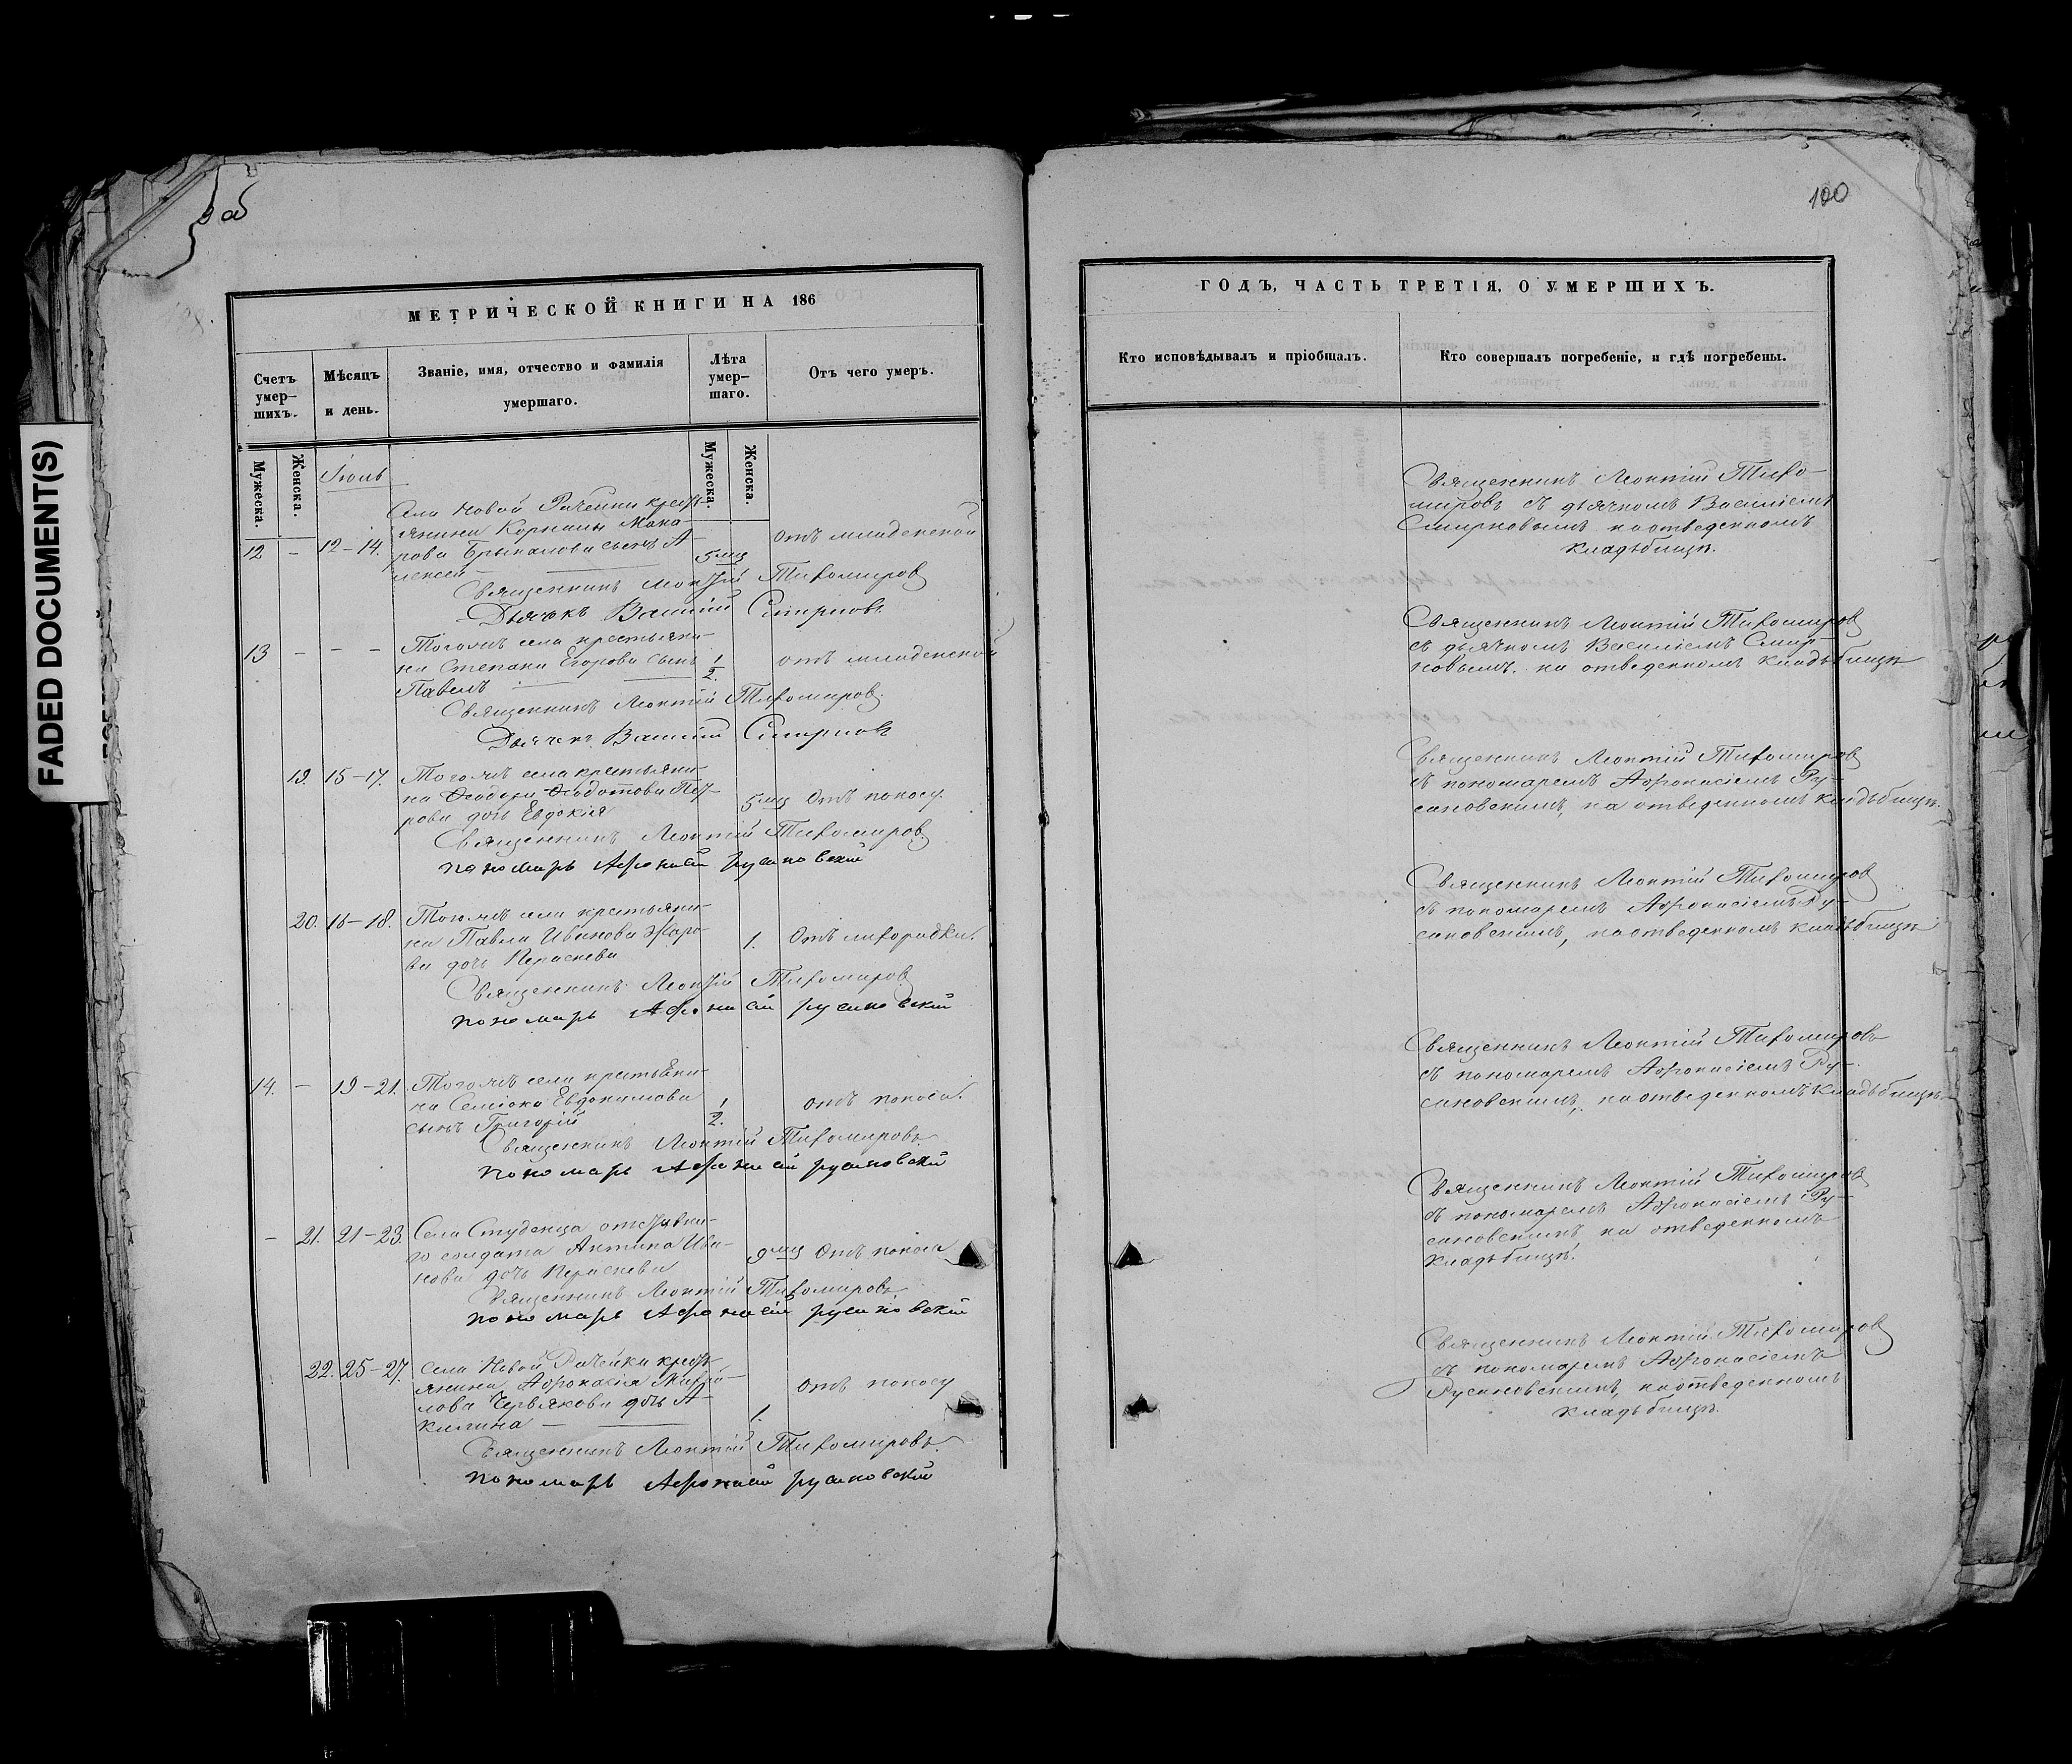 FADED DOCUMENT(S)
об
100
МЕТРИЧЕСКОЙ КНИГИ НА 186
Счетъ умер-шихъ.
Мѣсяцъ и день.
Званіе, имя, отчество и фамилія умершаго.
Лѣта умер-шаго.
Отъ чего умеръ.
Мужеска.
Женска.
Мужеска.
Женска.
Іюль
12 – 12–14.
Села Новой Рачейки крест-
янина Корнилы Мака-
рова Брыкалова сынъ А-
лексей
5 мц
отъ младенской
Священникъ Леонтій Тихомировъ
Дьячекъ Василій Смирновъ
13 – – –
Тогожъ села крестьяни-
на Степана Егорова сынъ
Павелъ
1/2.
отъ младенской
Священникъ Леонтій Тихомировъ
Дьячекъ Василій Смирновъ
19. 15–17.
Тогожъ села крестьяни-
на Ѳедора Ѳедотова
рова дочь Евдокія
5 мц
Отъ поносу.
Священникъ Леонтій Тихомировъ
пономарь Афонасій Русановскій
20. 16–18.
Тогожъ села крестьяни-
на Павла Иванова Жаро-
ва дочь Параскева
1.
Отъ лихорадки.
Священникъ Леонтій Тихомировъ
пономарь Афонасій Русановскій
14. – 19–21.
Тогожъ села крестьяни-
на Семіона Евдокимова
сынъ Григорій
1/2.
отъ поноса.
Священникъ Леонтій Тихомировъ
пономарь Афонасій Русановскій
– 21. 21–23.
Села Студенца отставна-
го солдата Антипа Ива-
нова дочь Параскева
9 мц
Отъ поноса
Священникъ Леонтій Тихомировъ
пономарь Афонасій Русановскій
22. 25–27.
Села Новой Рачейки крест-
янина Афонасія Михай-
лова Червякова дочь А-
килина
1.
отъ поносу
Священникъ Леонтій Тихомировъ
пономарь Афонасій Русановскій
ГОДЪ, ЧАСТЬ ТРЕТІЯ, О УМЕРШИХЪ.
Кто исповѣдывалъ и пріобщалъ.
Кто совершалъ погребеніе, и гдѣ погребены.
Священникъ Леонтій Тихо-
мировъ съ дьячкомъ Василіемъ
Смирновымъ на отведенномъ
кладьбищѣ.
Священникъ Леонтій Тихомировъ
съ дьячкомъ Василіемъ Смир-
новымъ, на отведенномъ кладьбищѣ
Священникъ Леонтій Тихомировъ
съ пономаремъ Афонасіемъ Ру-
сановскимъ, на отведенномъ кладьбищѣ.
Священникъ Леонтій Тихомировъ
съ пономаремъ Афонасіемъ Ру-
сановскимъ, на отведенномъ кладьбищѣ
Священникъ Леонтій Тихомировъ
съ пономаремъ Афонасіемъ Ру-
сановскимъ, на отведенномъ кладьбищѣ.
Священникъ Леонтій Тихомировъ
съ пономаремъ Афонасіемъ Ру-
сановскимъ, на отведенномъ
кладьбищѣ.
Священникъ Леонтій Тихомировъ
съ пономаремъ Афонасіемъ
Русановскимъ, на отведенномъ
кладьбищѣ.